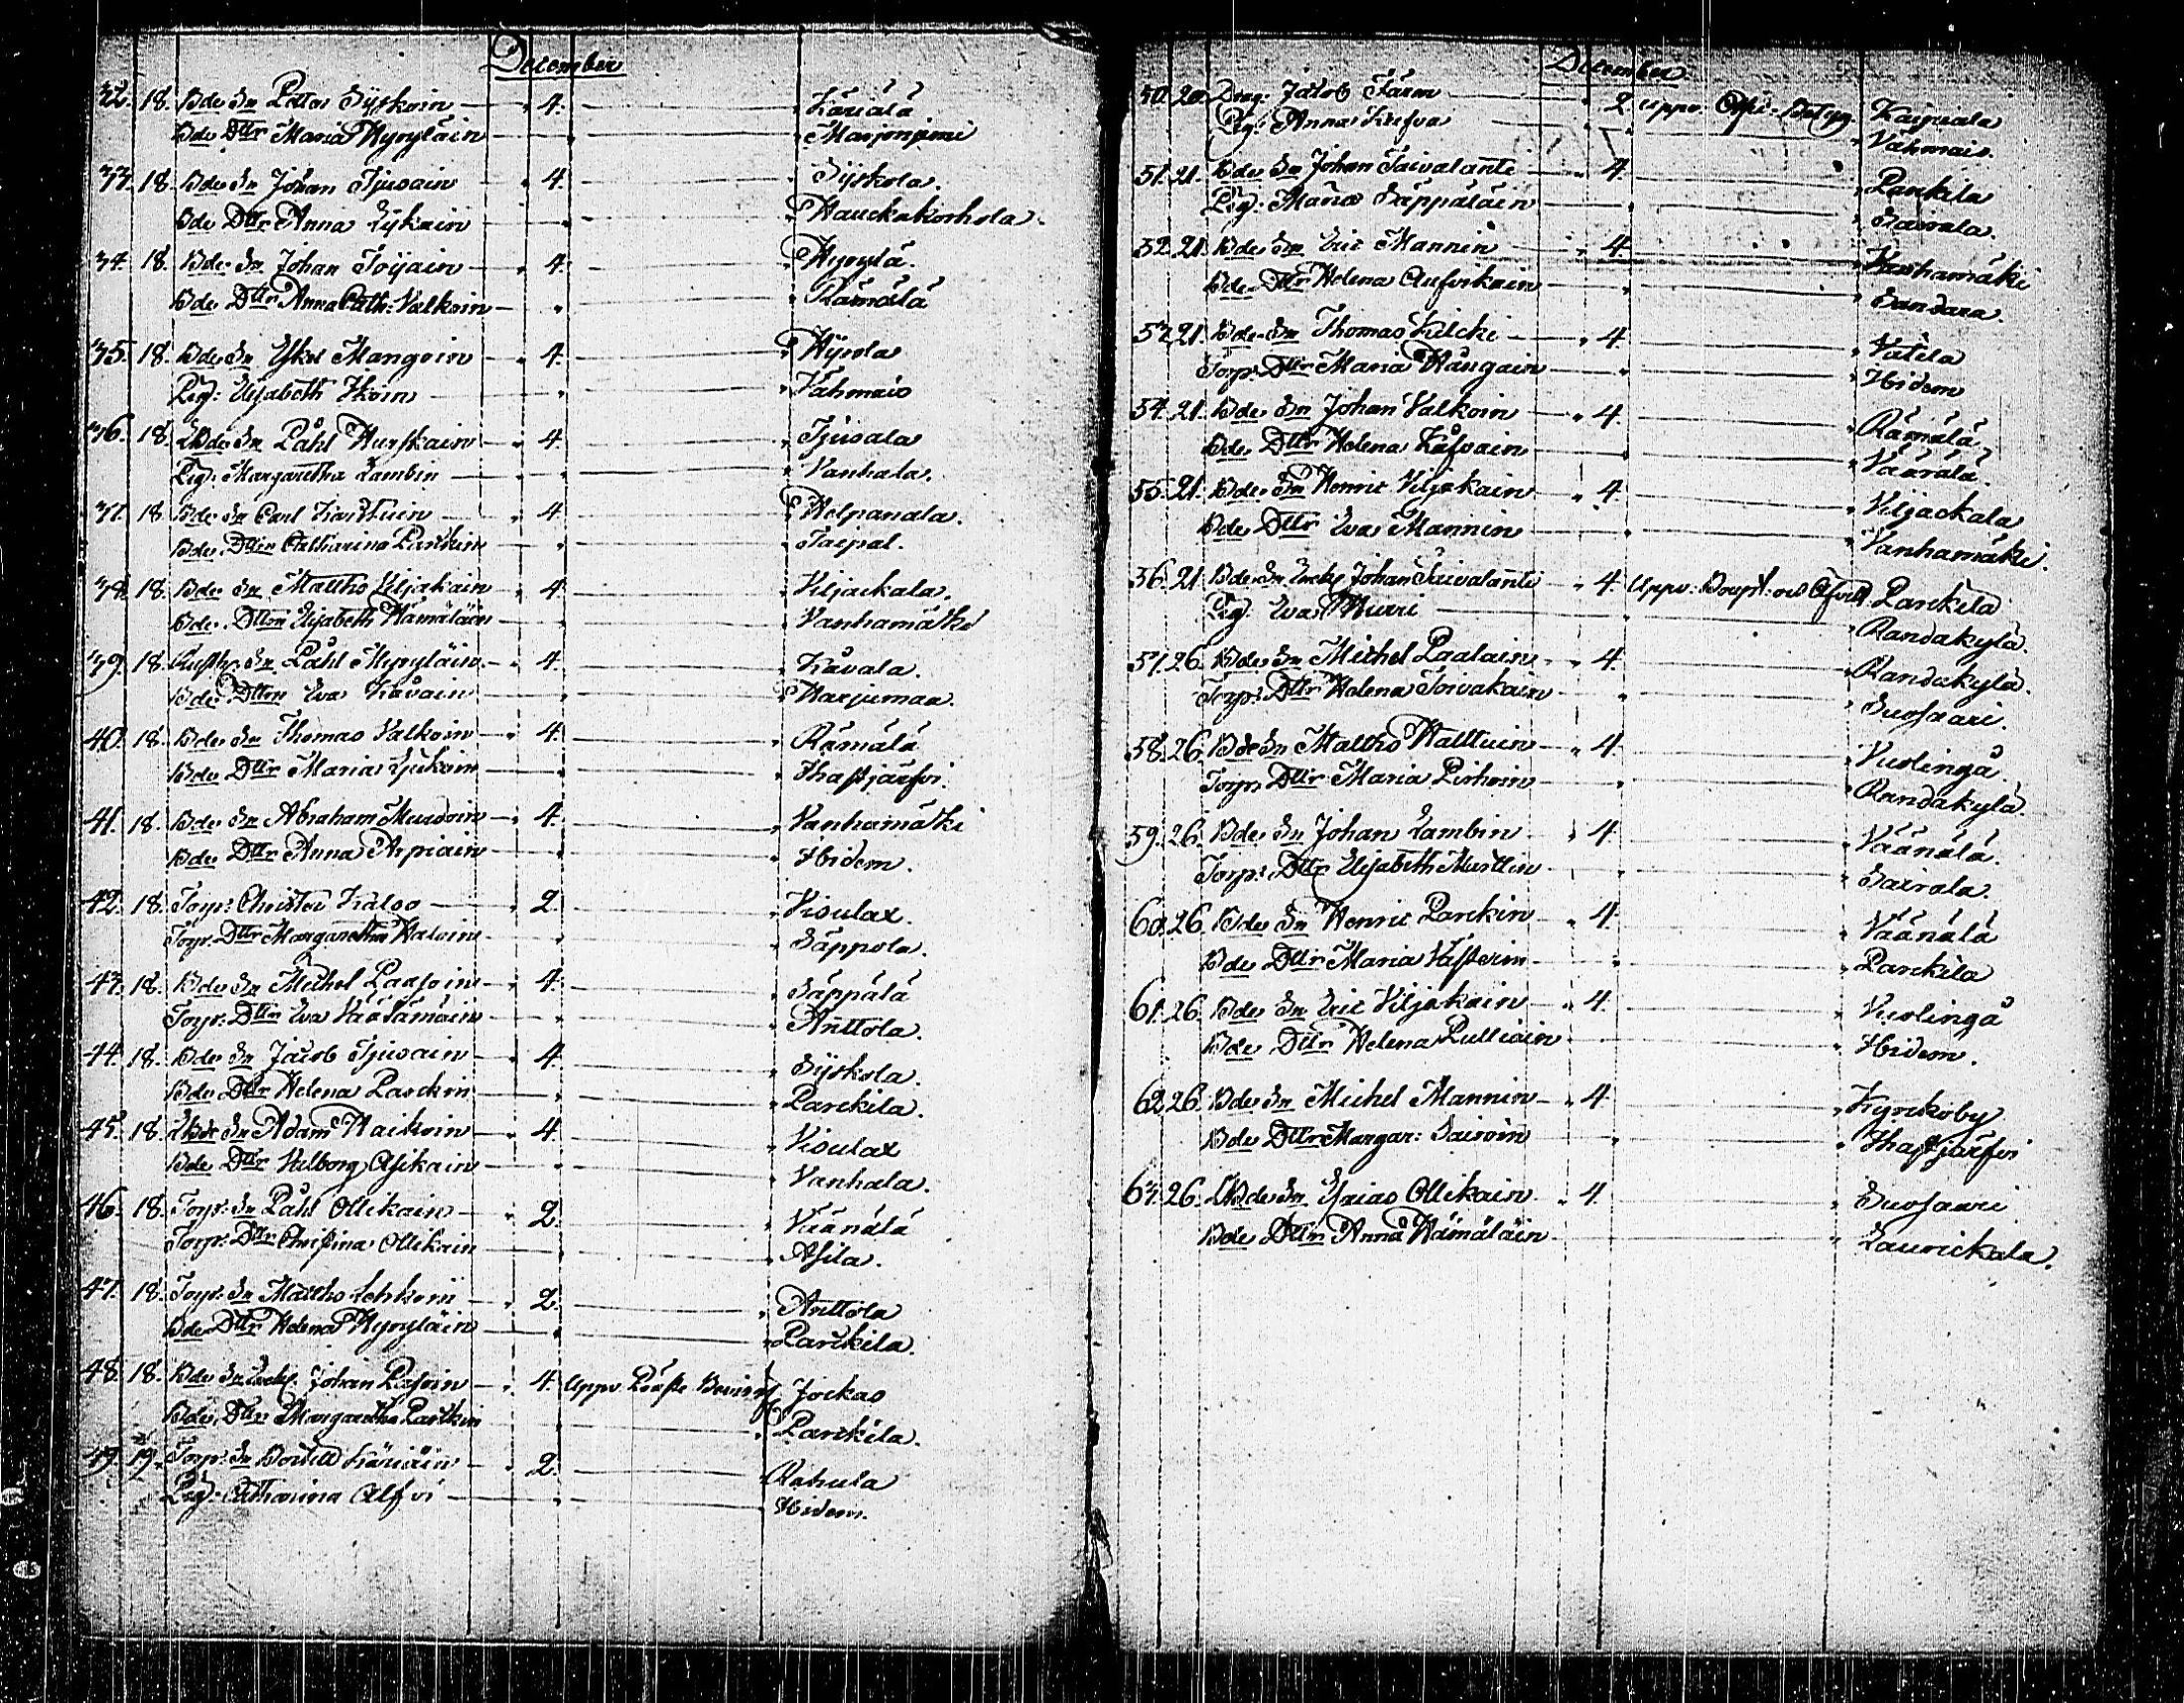 December
32. 18. Bde Sn Petter Syskoin 4. Käriälä
Bde Dttr Maria Hyryläin Marjoniemi
33. 18. Bde Sn Johan Tjusain 4. Syskola.
Bde Dttr Anna Lykain Hauckakorhola.
34. 18. Bde Sn Johan Toijain 4. Hyrylä.
Bde Dttr Anna Cath: Valkoin Rämälä
35. 18. Bde Sn Eskel Mangoin 4.
Pig: Elisabeth Ikoin Vahmais
36. 18. Bde Sn Påhl Hurskain 4. Tjusala
Pig: Margaretha Lambin Vanhala.
37. 18. Bde Sn Carl Karttuin 4. Helpanala.
Bde Dttr Catharina Parckin Taipal.
38. 18. Bde Sn Matths Viljakain 4. Viljackala.
Bde Dttr Elisabeth Hämäläin Vanhamäki
39. 18. Sn Påhl Hyryläin 4. Kåvala.
Bde Dttr Eva Kåvain Harjumaa.
40. 18. Bde Sn Thomas Valkoin 4. Rämälä
Bde Dttr Maria Ihastjärfvi.
41. 18. Bde Sn Abraham Mustoin 4. Vanhamäki
Bde Dttr Anna Arpiain Ibidem.
42. 18. Torp: Christer 2. Visulax.
Torp: Dttr Margaretha Säppola.
43. 18. Bde Sn Michel Paasoin 4. Säppälä
Torp: Dttr Eva Väätämöin Anttola.
44. 18. Bde Sn Jacob Tjusain 4. Syskola.
Bde Dttr Helena Parckin Parckila.
45. 18. Bde Sn Adam Haikoin 4. Visulax
Bde Dttr Valborg Asikain Vanhala.
46. 18. Torp: Sn Påhl Ollikain 2. Väänälä
Torp: Dttr Christina Ollikain Asila.
47. 18. Torp: Sn Matths Lehkoin 2. Anttola
Bde Dttr Helena Hyryläin Parckila.
48. 18. Bde Sn Johan Pasoin 4. Uppv. Präste Bevis af Jockas
Bde Dttr Margaretha Parckin Parckila.
49. 19. Torp: Sn Bertill Käriäin 2. Rahula
Pig: Catharina Alfvi Ibidem.
December
50. 20. Drag: Jacob 2. Uppv. Kaipiala
Pig: Anna Krefva Vahmais.
51. 21. Bde Sn Johan Taivalanti 4. Parckila
Pig: Maria Säppäläin Sairala.
52. 21. Bde Sn Eric Mannin 4. Vanhamäki
Bde Dttr Helena Aufvikain Sandara.
53. 21. Bde Sn Thomas Kilcki 4. Vatila
Torp: Dttr Maria Hångain Ibidem
54. 21. Bde Sn Johan Valkoin 4. Rämälä
Bde Dttr Helena Väärälä.
55. 21. Bde Sn Henric Viljakain 4. Viljackala
Bde Dttr Eva Mannin Vanhamäki.
56. 21. Bde Sn Johan Taivalanti 4. Uppv: Parckila
Pig: Eva Hurri Randakylä.
57. 26. Bde Sn Michel Paalain 4. Randakylä.
Torp: Dttr Helena Toivakain Suosaari.
58. 26. Bde Sn Matths Halttuin 4. Vuolingå
Torp: Dttr Maria Pirhoin Randakylä.
59. 26. Bde Sn Johan Lambin 4. Väänälä.
Torp: Dttr Elisabeth Sairala.
60. 26. Bde Sn Henric Parckin 4. Väänälä
Bde Dttr Maria Parckila
61. 26. Bde Sn Eric Viljakain 4. Vuolingå
Bde Dttr Helena Pulliain Ibidem.
62. 26. Bde Sn Michel Mannin 4. Kyrckoby
Bde Dttr Margar: Sairoin Ihastjärfvi
63. 26. Bde Sn Esaias Ollikain 4. Suosaari
Bde Dttr Anna Hämäläin Laurickala.